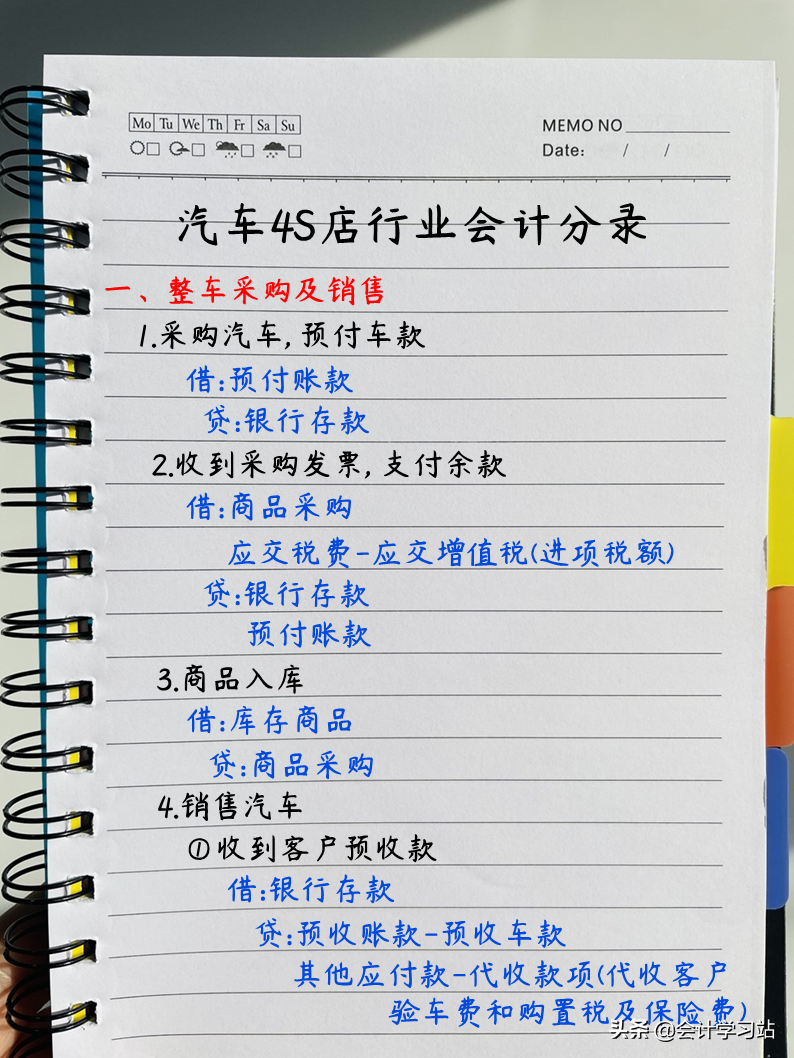 Mo Tu We Th Fr Sa Su
MEMO NO
Date: / /
汽车4S店行业会计分录
一、整车采购及销售
1.采购汽车,预付车款
借:预付账款
贷:银行存款
2.收到采购发票,支付余款
借:商品采购
应交税费-应交增值税(进项税额)
贷:银行存款
预付账款
3.商品入库
借:库存商品
贷:商品采购
4.销售汽车
①收到客户预收款
借:银行存款
贷:预收账款-预收车款
其他应付款-代收款项(代收客户
验车费和购置税及保险费)
头条 @会计学习站